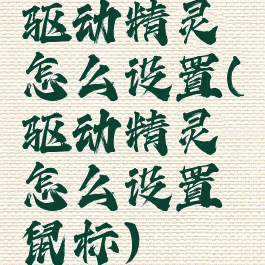 驱动精灵
怎么设置(
驱动精灵
怎么设置
鼠标)